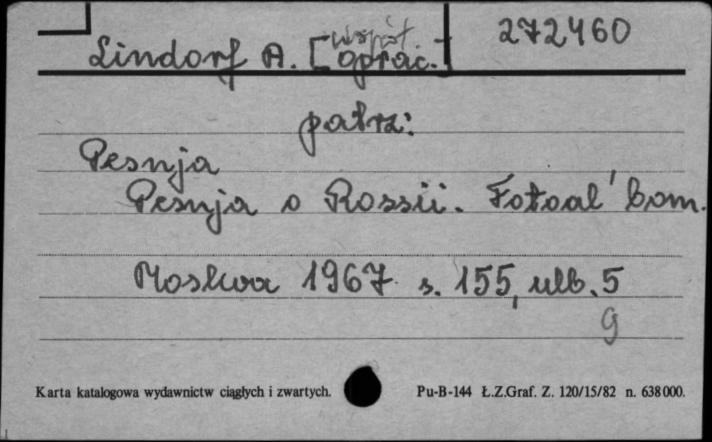 Lindorf A. [współoprac.] 272460
patrz:
Pesnja
Pesnja o Rossii. Fotoal'bom.
Moskva 1967 s. 155, nlb. 5
g
Karta katalogowa wydawnictw ciągłych i zwartych. Pu-B-144 Ł.Z.Graf. Z. 120/15/82 n. 638000.